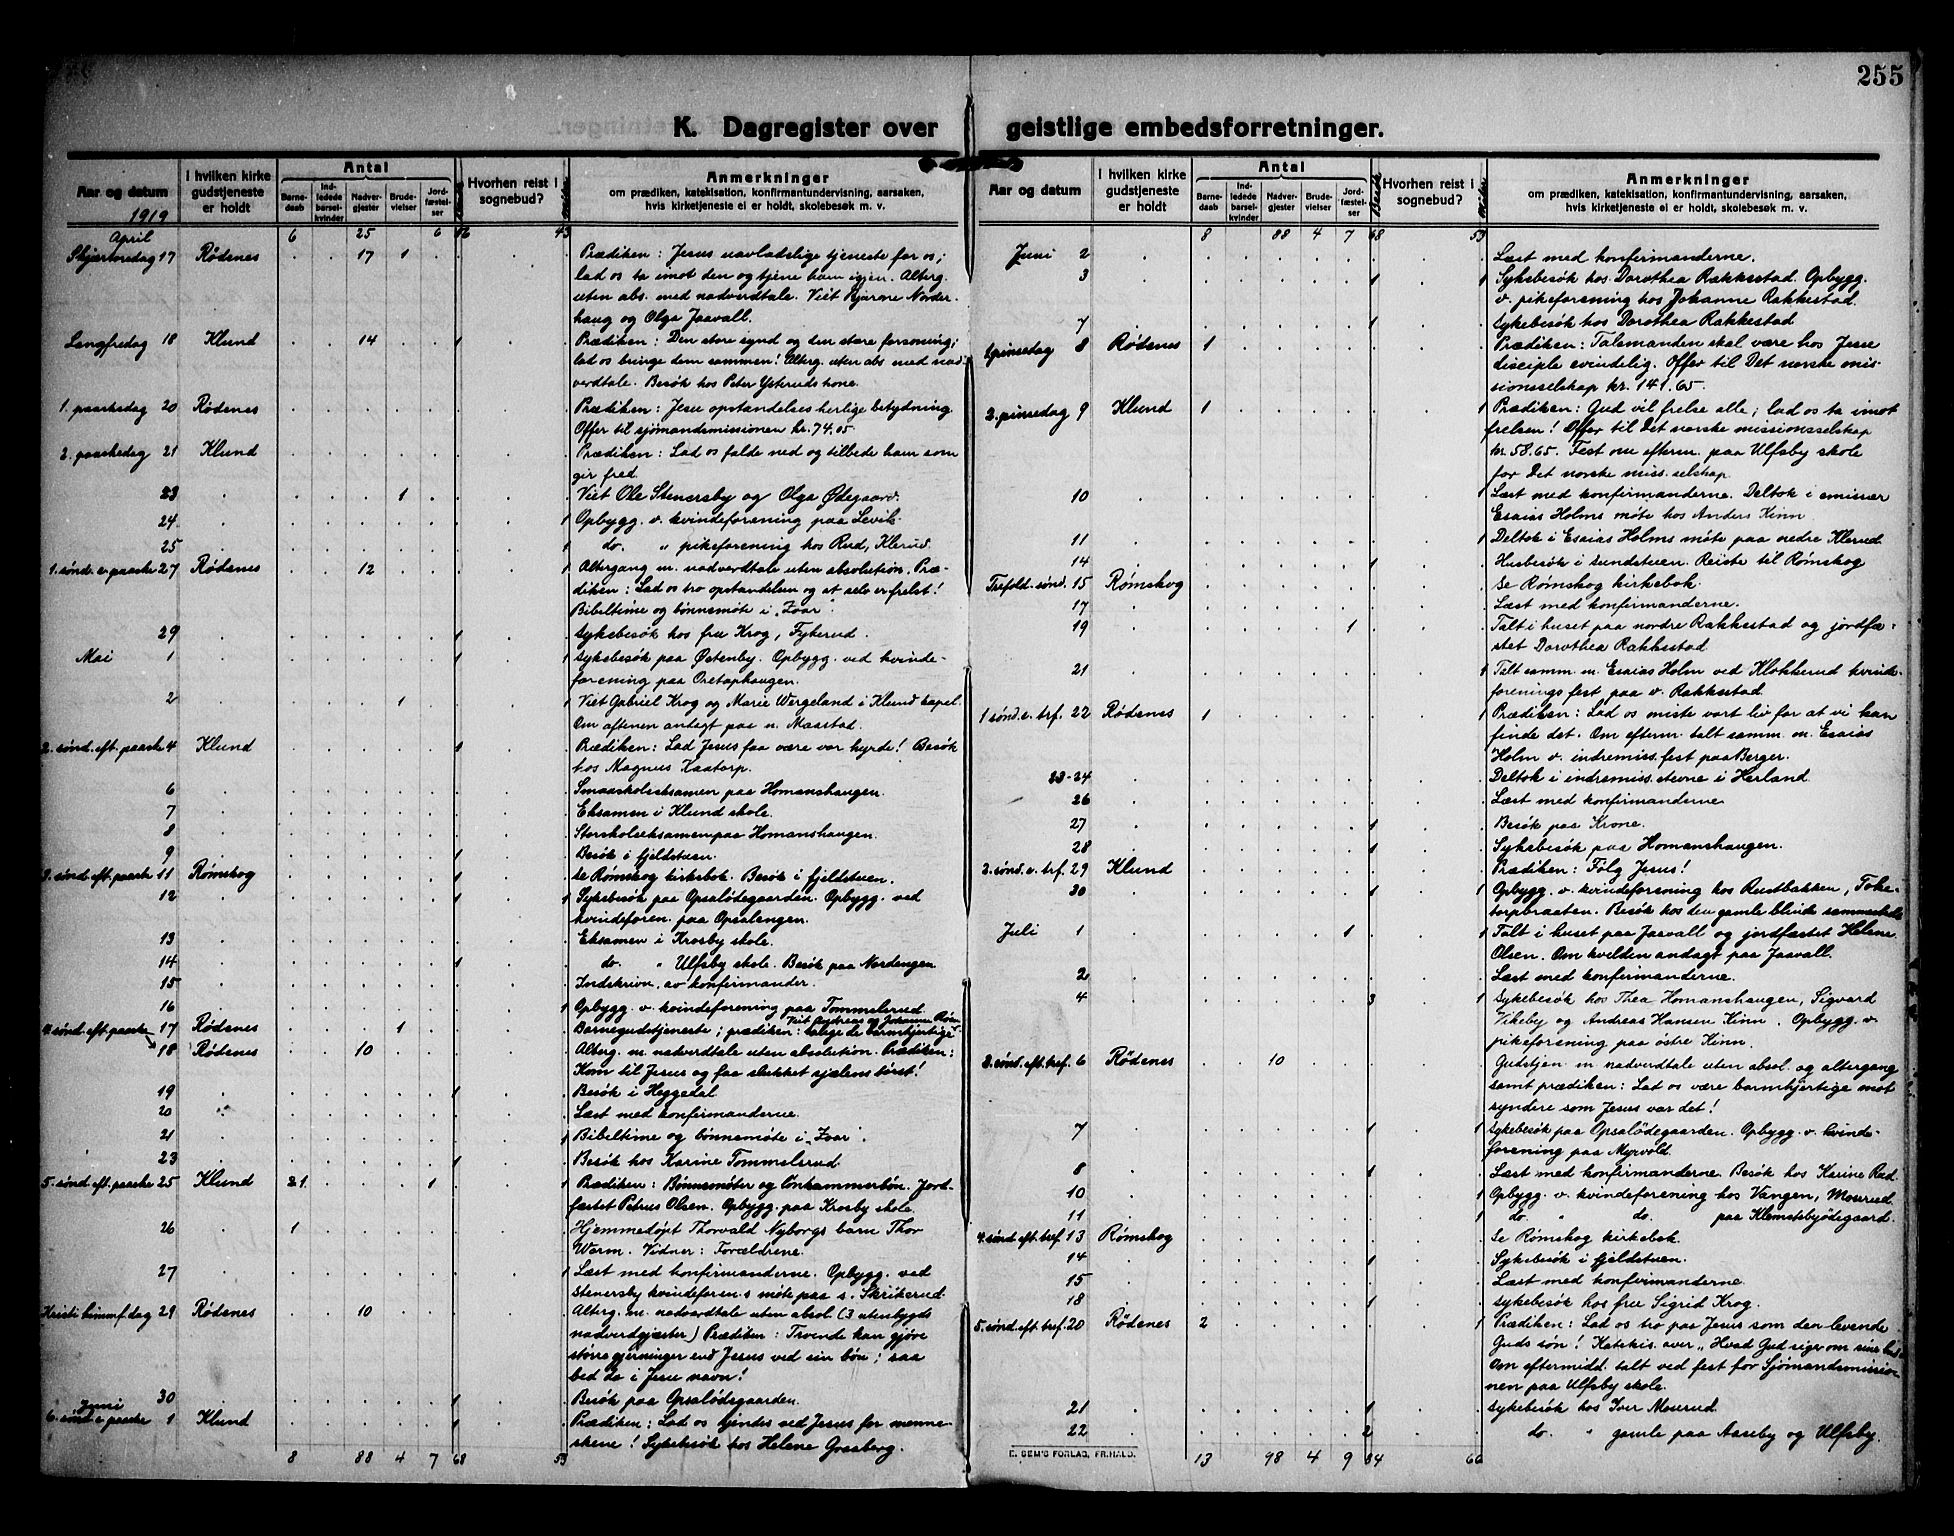 255
K. Dagregister over geistlige embedsforretninger.
Aar og datum
I hvilken kirke gudstjeneste er holdt
Antal
Barnedaab
Indledede barselkvinder
Nadvergjester
Brudevielser
Jordfæstelser
Besøk
Hvorhen reist i sognebud?
Anmerkninger
om prædiken, katekisation, konfirmantundervisning, aarsaken,
hvis kirketjeneste ei er holdt, skolebesøk m. v.
1919
April 6 25 6 43
Skjærtorsdag 17 Rødenes 17 1 Prædiken: Jesus uavladelige tjeneste for os;
lad os ta imot den og tjene ham igjen. Alterg.
uten abs. med nadverdtale. Viet Bjarne Norder-
haug og Olga Jaavall.
Langfredag 18 Klund 14 1 Prædiken: Den store synd og den store forsoning;
lad os bringe dem sammen! Alterg. uten abs med nad-
verdtale. Besøk hos Peter Ystruds kone.
1. paaskedag 20 Rødenes Prædiken: Jesu opstandelses herlige betydning.
Offer til sjömandsmissionen kr. 74.05.
2. paaskedag 21 Klund Prædiken: Lad os falde ned og tilbede ham som
gir fred.
23 1 Viet Ole Stenersby og Olga Ødegaard.
24. 1 Opbygg. v. kvindeforening paa Levik.
25 1 do. " pikeforening hos Rud, Klerud.
1. sønd. e. paaske 27 Rødenes 12 1 Altergang m. nadverdtale uten absolution. Præ-
diken: Lad os tro opstandelsen og at selv er frelst!
Bibeltime og bønnemøte i "Zoar".
29 1 Sykebesök hos fru Krog, Fykerud.
Mai 1 1 1 Sykebesök paa Østenby. Opbygg. ved kvinde-
forening paa Oretophaugen.
2 1 1 Viet Gabriel Krog og Marie Wergeland i Klund kapel.
Om aftenen andagt paa n. Maastad.
2. sønd. eft. paaske 4 Klund 1 Prædiken: Lad Jesus faa være vor hyrde! Besök
hos Magnus Kaatorp.
6 Smaaskoleeksamen paa Homanshaugen.
7 Eksamen i Klund skole.
8 Storskoleeksamen paa Homanshaugen.
9 1 Besök i fjeldstuen.
3. sønd. eft. paaske 11 Rømskog 1 Se Rømskog kirkebok. Besök i fjeldstuen.
12 1 1 Sykebesök paa Opsalødegaarden. Opbygg. ved
kvindeforen. paa Opsalengen.
13 Eksamen i Krosby skole.
14 1 do. " Ulfsby skole. Besök paa Nordengen
15 Indskrivn. av konfirmander.
16 1 Opbygg. v. kvindeforening paa Tommelsrud
4. sønd. eft. paaske 17 Rødenes 1 Barnegudstjeneste; prædiken: salige de barmhjertige
18 Rødenes 10 Alterg. m. nadverdtale uten absolution. Prædiken:
Kom til Jesus og faa slukket sjælens tørst!
19 1 Besök i Heggedal
20 Læst med konfirmanderne.
21 1 Bibeltime og bønnemøte i "Zoar".
23 1 Besök hos Karine Tommelsrud.
5. sønd. eft. paaske 25 Klund 21. 1 1 Prædiken: Bønnemöter og lönkammerbön. Jord-
fæstet Petrus Olsen. Opbygg. paa Krosby skole.
26 1 Hjemmedøpt Thorvald Nyborgs barn Thor
Worm. Vidner: Forældrene.
27 1 Læst med konfirmanderne. Opbygg. ved
Stenersby kvindeforen.s møte paa s. Skrikerud.
Kristi himmf. dag 29 Rødenes 10 Alterg. m. nadverdtale uten absol (3 utenbygds
nadverdgjæster) Prædiken: Troende kan gjøre
større gjerninger end Jesus ved sin bøn; saa
bed da i Jesu navn!
30 1 Besök paa Opsalödegaarden.
Juni
6. sønd e paaske 1 Klund 1 Prædiken: Lad os kjendes ved Jesus for menne-
skene! Sykebesök hos Helene Grasberg.
8 88 4 7 68 53
Aar og datum
I hvilken kirke gudstjeneste er holdt
Antal
Barnedaab
Indledede barselkvinder
Nadvergjester
Brudevielser
Jordfæstelser
Besøk
Hvorhen reist i sognebud?
Anmerkninger
om prædiken, katekisation, konfirmantundervisning, aarsaken,
hvis kirketjeneste ei er holdt, skolebesøk m. v.
8 88 4 7 68 53
Juni 2 Læst med konfirmanderne.
3 1 1 Sykebesök hos Dorothea Rakkestad. Opbygg.
v. pikeforening hos Johanne Rakkestad.
7 1 Sykebesök hos Dorothea Rakkestad
1 pinsedag 8 Rødenes 1 Prædiken: Talsmanden skal være hos Jesu
disciple evindelig. Offer til Det norske mis-
sionsselskap kr. 141.65.
2. pinsedag 9 Klund 1 1 Prædiken: Gud vil frelse alle; lad os ta imot
frelsen! Offer til Det norske missionsselskap
kr. 58.65. Fest om efterm. paa Ulfsby skole
for Det norske miss. selskap.
10 1 Læst med konfirmanderne. Deltok i emissær
Esaias Holms möte hos Anders Kinn
11 1 Deltok i Esaias Holms möte paa nedre Klerud.
14 1 Husbesök i Sundstuen. Reiste til Rømskog
Trefold. sønd. 15 Rømskog Se Rømskog kirkebok.
17 Læst med konfirmanderne.
19 1 1 Talt i huset paa nordre Rakkestad og jordfæ-
stet Dorothea Rakkestad
21 1 Talt samm. m. Esaias Holm ved Klokkerud kvinde-
forenings fest paa v. Rakkestad
1 sønd. e. trf. 22 Rødenes 1 1 Prædiken: Lad os miste vort liv for at vi kan
finde det. Om efterm. talt samm. m. Esaias
Holm v. indremiss. fest paa Berger.
23-24 Deltok i indremiss. stevne i Herland.
26 Læst med konfirmanderne
27 1 Besök paa Krone.
28 1 Sykebesök paa Homanshaugen.
2. sønd. e. trf. 29 Klund Prædiken: Fölg Jesus!
30 1 1 Opbygg. v. kvindeforening hos Rustbakken, Toke-
torpbraaten. Besök hos den gamle blinde sammesteds
Juli 1 1 1 Talt i huset paa Jaavall og jordfæstet Helene
Olsen. Om kvelden andagt paa Jaavall.
2 Læst med konfirmanderne.
4 3 1 Sykebesök hos Thea Homanshaugen, Sigvard
Vikeby og Andreas Hansen Kinn. Opbygg. v.
pikeforening paa östre Kinn.
3. sønd. eft. tref. 6 Rødenes 10 Gudstjen. m. nadverdtale uten absol. og altergang
samt prædiken: Lad os være barmhjertige mot
syndere som Jesus var det!
7 1 1 Sykebesök paa Opsalödegaarden. Opbygg. v. kvinde-
forening paa Myrvold.
8 1 Læst med konfirmanderne. Besök hos Karine Rud.
10 1 Opbygg. v. kvindeforening hos Vangen, Mosrud.
11 1 do. " do. paa Klemetsbyödegaard.
4. sønd. eft. tref. 13 Rømskog Se Rømskog kirkebok.
14 1 Sykebesök i fjeldstuen.
15 Læst med konfirmanderne.
18 1 Sykebesök hos frue Sigrid Krog.
5. sønd. eft. tref. 20 Rødenes 2 1 Prædiken: Lad os tro paa Jesus som den levende
Guds sön! Katekis. over "Hvad Gud siger om sine bud".
Om eftermidd. talt ved fest for Sjömandsmissio-
nen paa Ulfsby skole.
21 1 Sykebesök hos Iver Mosrud.
22 2 do. " gamle paa Aaseby og Ulfsby.
E. SEM'S FORLAG, FR.HALD. 13 98 4 9 84 66